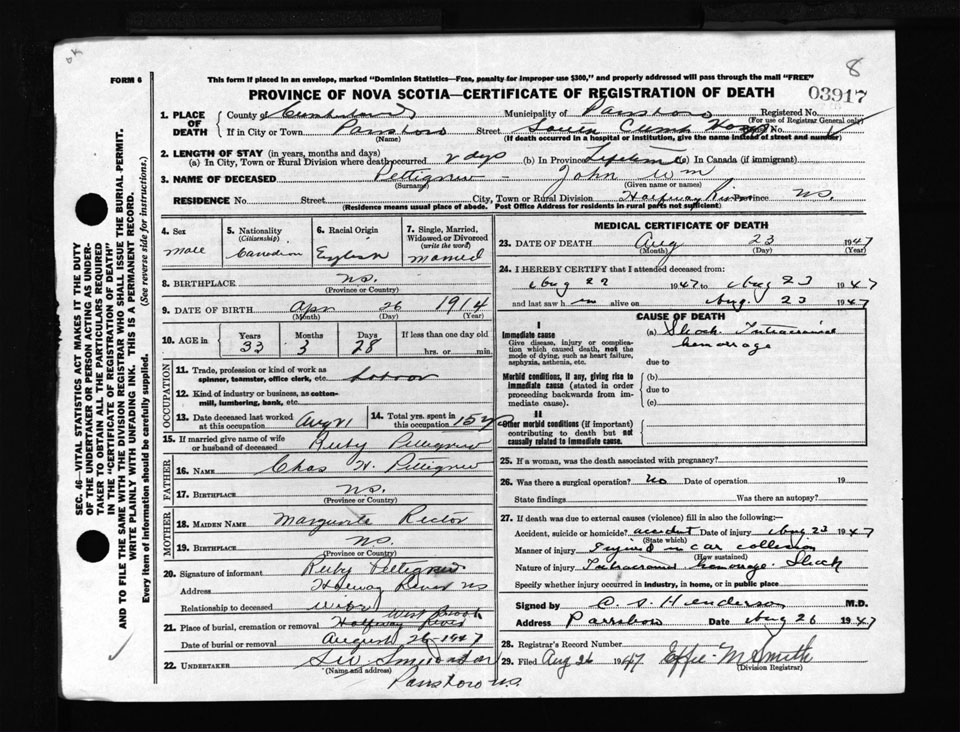 8
FORM 6
This form if placed in an envelope, marked "Dominion Statistics—Free, penalty for improper use $300," and properly addressed will pass through the mail "FREE"
PROVINCE OF NOVA SCOTIA—CERTIFICATE OF REGISTRATION OF DEATH 03917
1. PLACE OF DEATH County of Cumberland Municipality of Parrsboro Registered No.
(For use of Registrar General only)
If in City or Town Parrsboro Street South
(Name) (If death occurred in a hospital or institution, give the name instead of street and number)
2. LENGTH OF STAY (in years, months and days)
(a) In City, Town or Rural Division where death occurred 2 days (b) In Province Lifetime (c) In Canada (if immigrant)
3. NAME OF DECEASED Pettigrew - John Wm
(Surname) (Given name or names)
RESIDENCE No. Street City, Town or Rural Division Halfway River Province N.S.
(Residence means usual place of abode. Post Office Address for residents in rural parts not sufficient)
4. Sex 5. Nationality (Citizenship) 6. Racial Origin 7. Single, Married, Widowed or Divorced (write the word)
male Canadian English married
8. BIRTHPLACE N.S.
(Province or Country)
9. DATE OF BIRTH Apr 26 1914
(Month) (Day) (Year)
10. AGE in Years Months Days If less than one day old
33 3 28 hrs. or min.
OCCUPATION
11. Trade, profession or kind of work as spinner, teamster, office clerk, etc. Labour
12. Kind of industry or business, as cotton-mill, lumbering, bank, etc.
13. Date deceased last worked at this occupation Aug 21 14. Total yrs. spent in this occupation 15 yrs
15. If married give name of wife or husband of deceased Ruby Pettigrew
FATHER
16. NAME Chas H. Pettigrew
17. BIRTHPLACE N.S.
(Province or Country)
MOTHER
18. MAIDEN NAME Margurita Rector
19. BIRTHPLACE N.S.
(Province or Country)
20. Signature of informant Ruby Pettigrew
Address Halfway River NS
Relationship to deceased wife
21. Place of burial, cremation or removal West Brook Halfway River
Date of burial or removal August 26 1947
22. UNDERTAKER
(Name and Address)
Parrsboro N.S.
MEDICAL CERTIFICATE OF DEATH
23. DATE OF DEATH Aug 23 1947
(Month) (Day) (Year)
24. I HEREBY CERTIFY that I attended deceased from:
Aug 22 1947 to Aug 23 1947
and last saw him alive on Aug. 23 1947
CAUSE OF DEATH
I
Immediate cause
Give disease, injury or complication which caused death, not the mode of dying, such as heart failure, asphyxia, asthenia, etc.
(a) Shock. Intracranial hemorrage
due to
Morbid conditions, if any, giving rise to immediate cause (stated in order proceeding backwards from immediate cause).
(b)
due to
(c)
II
Other morbid conditions (if important) contributing to death but not causally related to immediate cause.
25. If a woman, was the death associated with pregnancy?
26. Was there a surgical operation? No Date of operation 19
State findings Was there an autopsy?
27. If death was due to external causes (violence) fill in also the following:—
Accident, suicide or homicide? accident Date of injury Aug 23 1947
(State which)
Manner of injury Injured in car collision
(How sustained)
Nature of injury Intracranial hemorrage. Shock
Specify whether injury occurred in industry, in home, or in public place
Signed by C. S. Henderson M.D.
Address Parrsboro Date Aug 26 1947
28. Registrar's Record Number
29. Filed Aug 26 1947 Effie M Smith
(Division Registrar)
SEC. 46—VITAL STATISTICS ACT MAKES IT THE DUTY
OF THE UNDERTAKER OR PERSON ACTING AS UNDER-
TAKER TO OBTAIN ALL THE PARTICULARS REQUIRED
IN THE "CERTIFICATE OF REGISTRATION OF DEATH"
AND TO FILE THE SAME WITH THE DIVISION REGISTRAR WHO SHALL ISSUE THE BURIAL PERMIT.
WRITE PLAINLY WITH UNFADING INK. THIS IS A PERMANENT RECORD.
Every item of information should be carefully supplied. (See reverse side for instructions.)